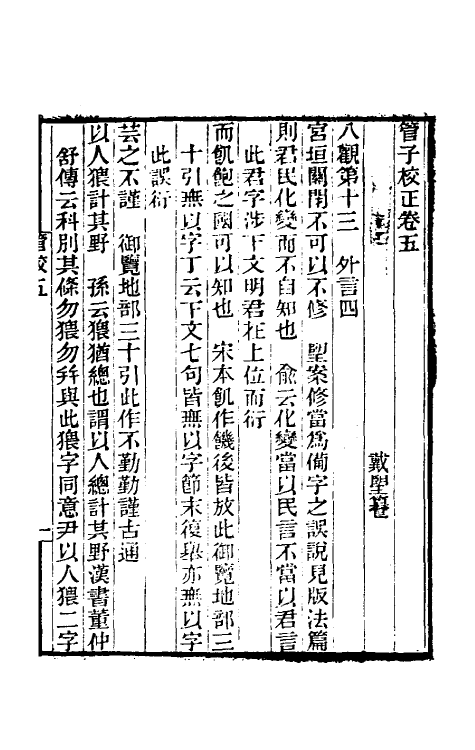 管子校正卷五
戴望箸
八觀第十三　外言四
宮垣關閉不可以不修　望案修當爲備字之誤說見版法篇
則君民化變而不自知也　俞云化變當以民言不當以君言
此君字涉下文明君在上位而衍
而飢飽之國可以知也　宋本飢作饑後皆放此御覽地部三
十引無以字丁云下文七句皆無以字節末復舉亦無以字
此誤衍
芸之不謹　御覽地部三十引此作不勤勤謹古通
以人猥計其野　孫云猥猶總也謂以人總計其野漢書董仲
舒傳云科別其條勿猥勿幷與此猥字同意尹以人猥二字
管校五
一